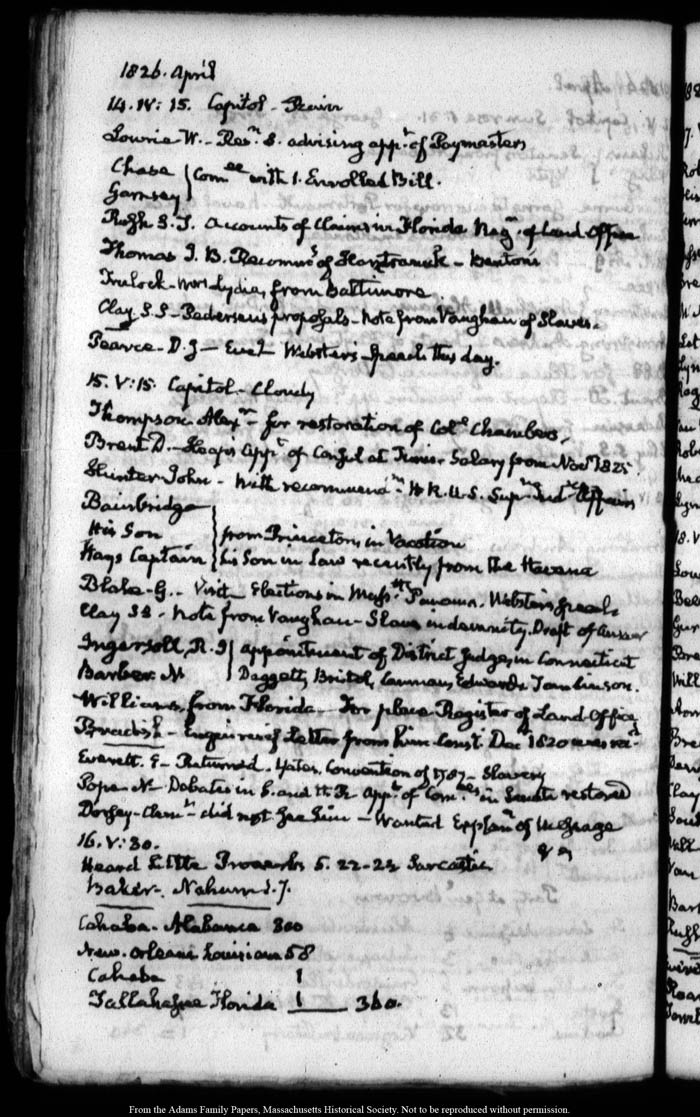 1826. April
14. IV: 15. Capitol - Rain
Lowrie W. - Resn. S. advising appt. of Paymasters
Chase } Comee with 1. Enrolled Bill.
Garnsey
Rush S. Accounts of Claims in Florida of Land Office
Thomas J. B. of - Benton's
Trulock - Mrs Lydia, from Baltimore
Clay S.S - Pedersen's proposals - Note from Vaughan of Slaves.
Pearce - D. J - Webster's speech this day.
15. V: 15. Capitol - Cloudy
Thompson. Alexr. - for restoration of Coll. Chambers,
Brent D. - Heap's Appt. of Consul at Tunis. Salary from Novr 1825.
Hunter John - With recommendn. H.R.U.S. Supt. Indn. Affairs
Bainbridge
His Son } from Princeton, in Vacation
Hays Captain } his Son in Law recently from the Havana
Blake. G. - Visit. Elections in Massts. Panama. Webster's speech
Clay S S - Note from Vaughan - Slave indemnity. Draft of answer
Ingersoll, R. I } appointment of District Judge, in Connecticut
Barber. N } Daggett, Bristol, Edwards Tomlinson.
Williams, from Florida - For place Register of Land Office
- Enquires if Letter from him Const. Decr 1820 was recd.
Everett. E - Returned. Yates. Convention of 1787 - Slavery
Pope - N - Debates in S. and H. R Appt. of Comees. in Senate restored
Dorsey - Clemt. - did not see him - Wanted Explann. of Message
16. V: 30.
Heard Little Proverbs 5. 22-23 Sarcastic
Baker. Nahum 1. 7.
Cahaba. Alabama 300
New. Orleans Louisiana 58
Cahaba 1
Tallahassee Florida 1 360.
From the Adams Family Papers, Massachusetts Historical Society. Not to be reproduced without permission.